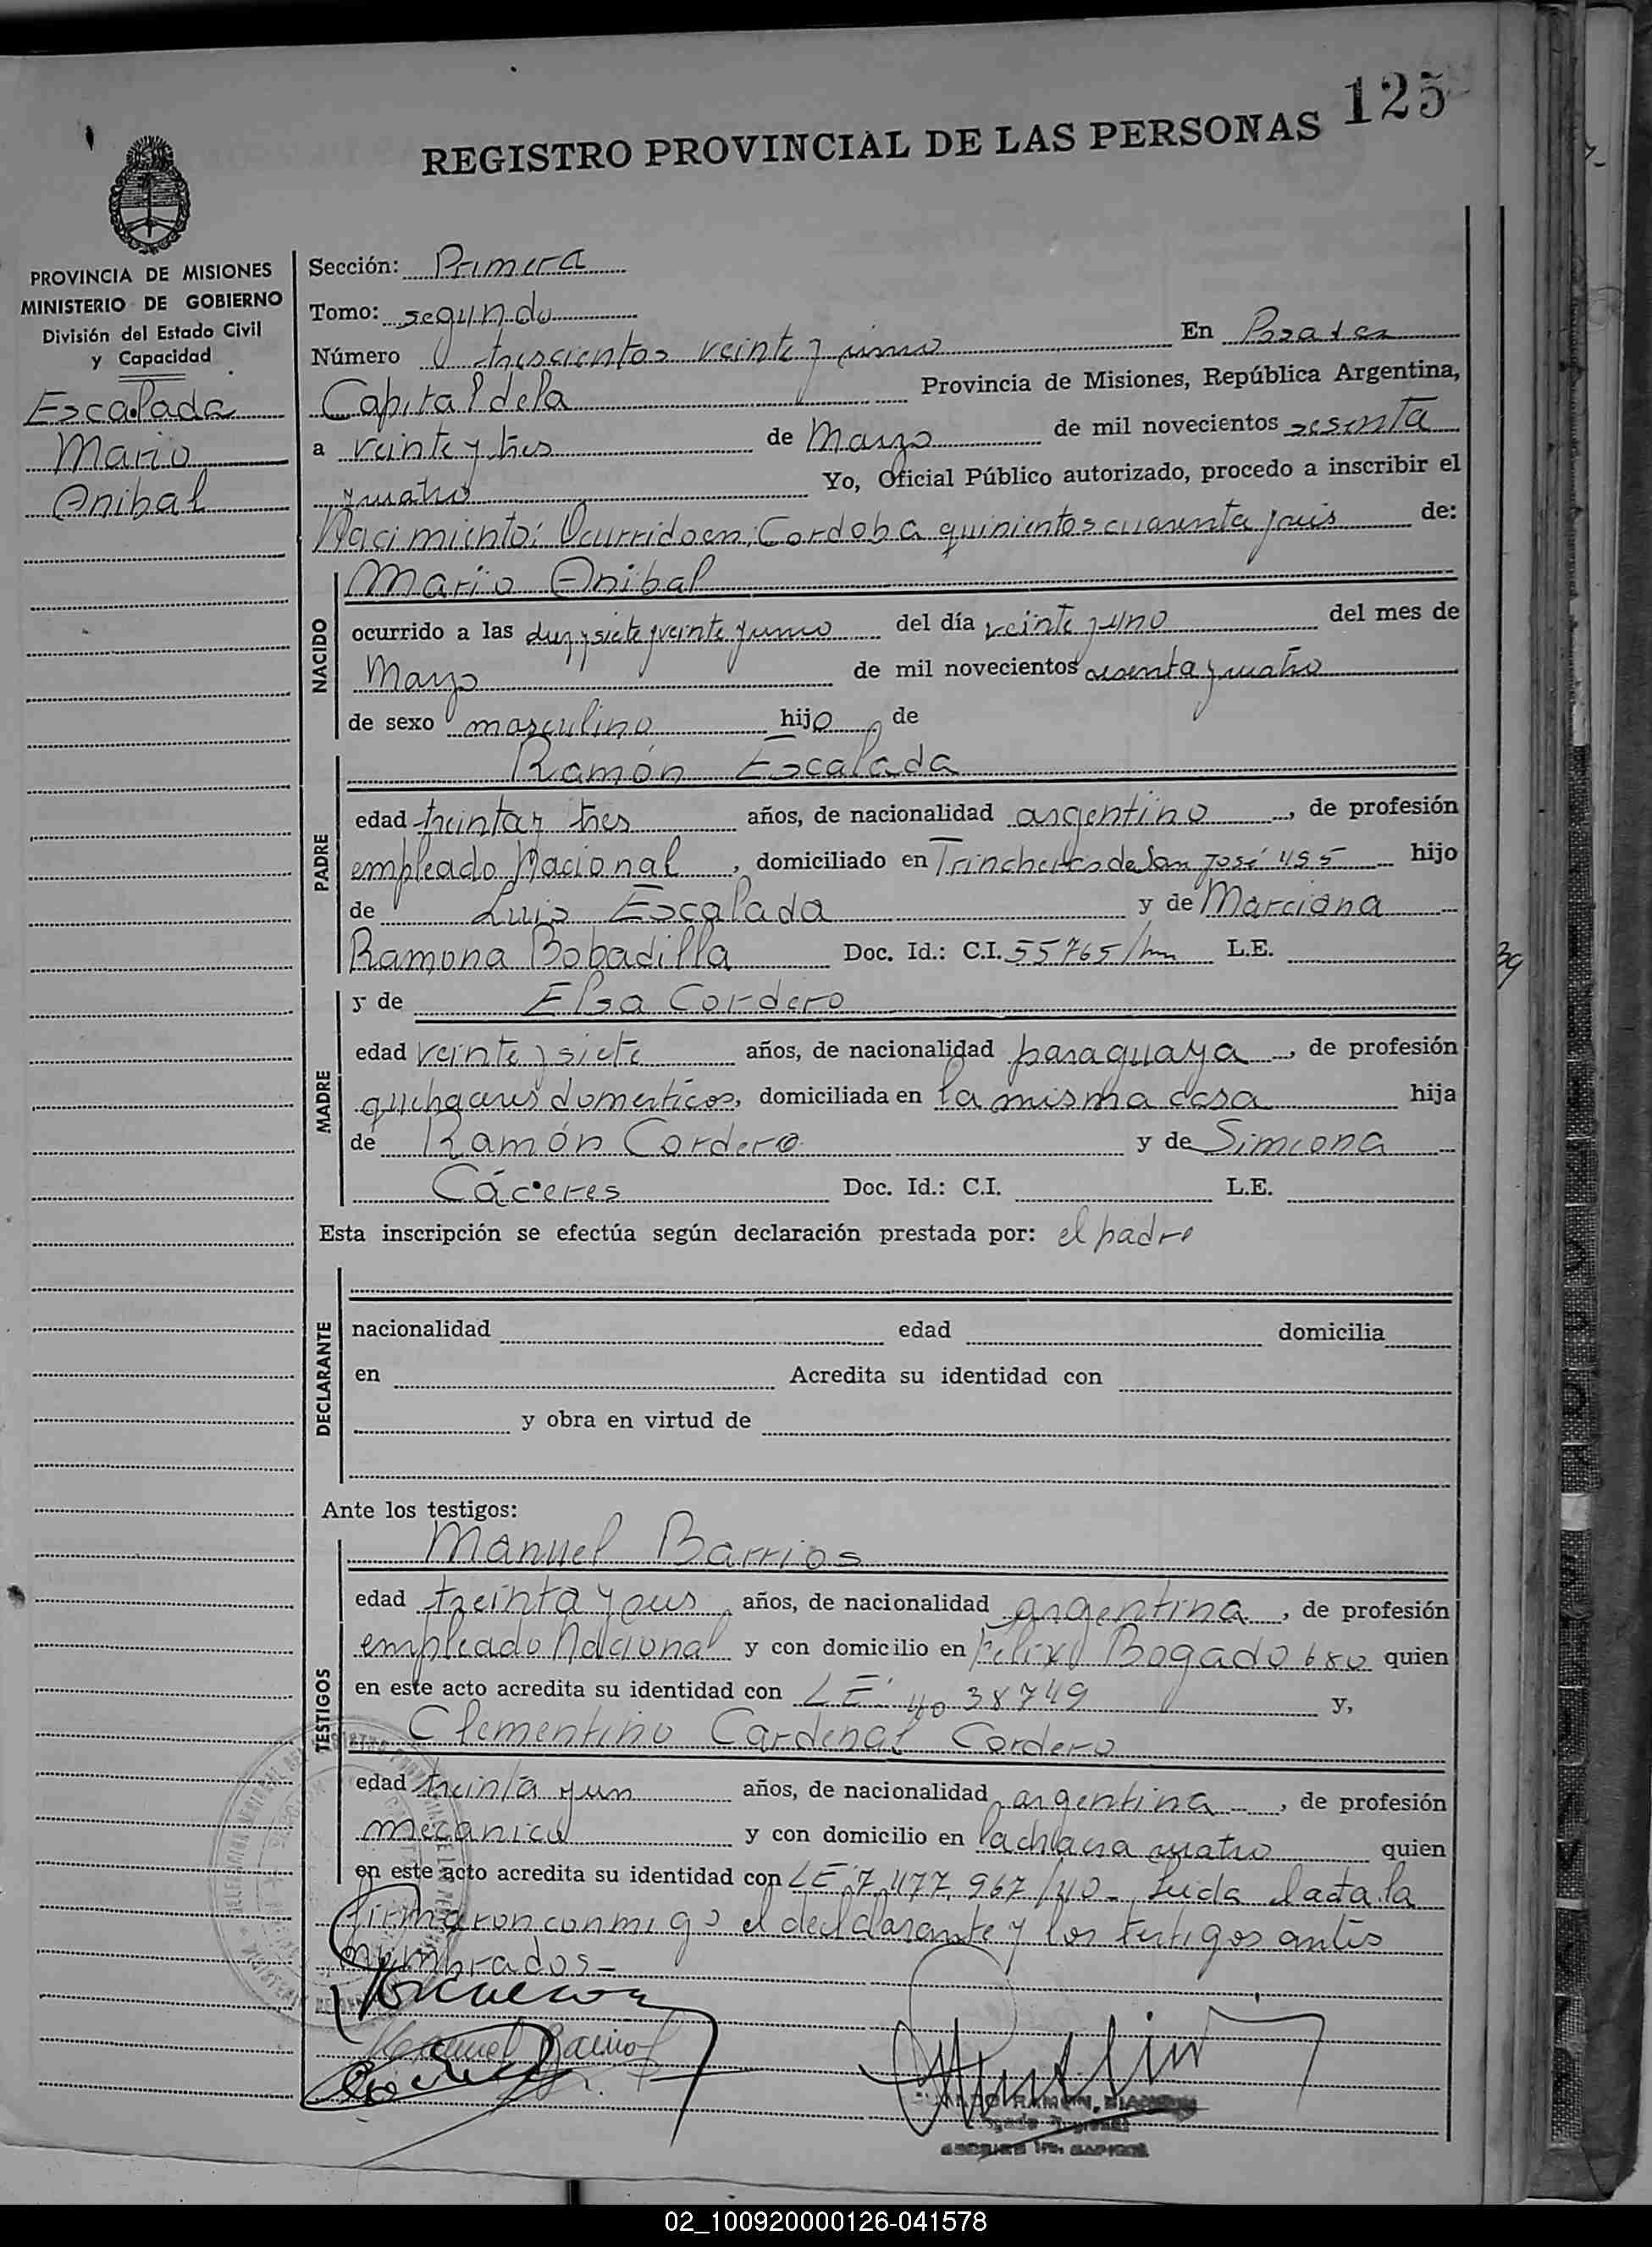 125
REGISTRO PROVINCIAL DE LAS PERSONAS
PROVINCIA DE MISIONES
MINISTERIO DE GOBIERNO
División del Estado Civil
y Capacidad
Escalada
Mario
Anibal
Sección: Primera
Tomo: segundo
Número trescientos veinte y uno En Posadas
Capital de la Provincia de Misiones, República Argentina,
a veinte y tres de Marzo de mil novecientos sesenta
y cuatro Yo, Oficial Público autorizado, procedo a inscribir el
Nacimiento: Ocurrido en; Cordoba quinientos cuarenta y seis de:
NACIDO
Mario Anibal
ocurrido a las diez y siete y veinte y cinco del día veinte y uno del mes de
Marzo de mil novecientos sesenta y cuatro
de sexo masculino hijo de
PADRE
Ramón Escalada
edad treinta y tres años, de nacionalidad argentino, de profesión
empleado Nacional, domiciliado en Trincheras de San José 495 hijo
de Luis Escalada y de Marciana
Ramona Bobadilla Doc. Id.: C.I. 55765/ L.E.
MADRE
y de Elsa Cordero
edad veinte y siete años, de nacionalidad paraguaya, de profesión
quehaceres domesticos, domiciliada en la misma casa hija
de Ramón Cordero y de Simeona
Cáceres Doc. Id.: C.I. L.E.
Esta inscripción se efectúa según declaración prestada por: el padre
DECLARANTE
nacionalidad edad domicilia
en Acredita su identidad con
y obra en virtud de
Ante los testigos:
TESTIGOS
Manuel Barrios
edad treinta y seis años, de nacionalidad argentina, de profesión
empleado Nacional y con domicilio en Felix Bogado 680 quien
en este acto acredita su identidad con LE. 4038749 y,
Clementino Cardenal Cordero
edad treinta y un años, de nacionalidad argentina, de profesión
mecanico y con domicilio en la chacra cuatro quien
en este acto acredita su identidad con LE. 7.477.967/40- Leida el acta la
firmaron conmigo el declarante y los testigos antes
nombrados-
Manuel Barrios
39
02_100920000126-041578